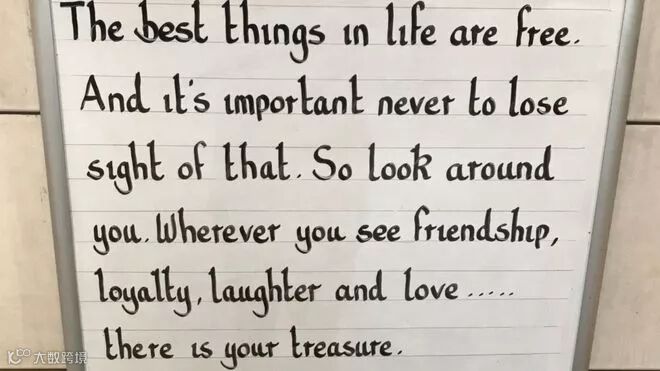 The best things in life are free.
And it's important never to lose
sight of that. So look around
you. Wherever you see friendship,
loyalty, laughter and love.....
there is your treasure.
大数跨境